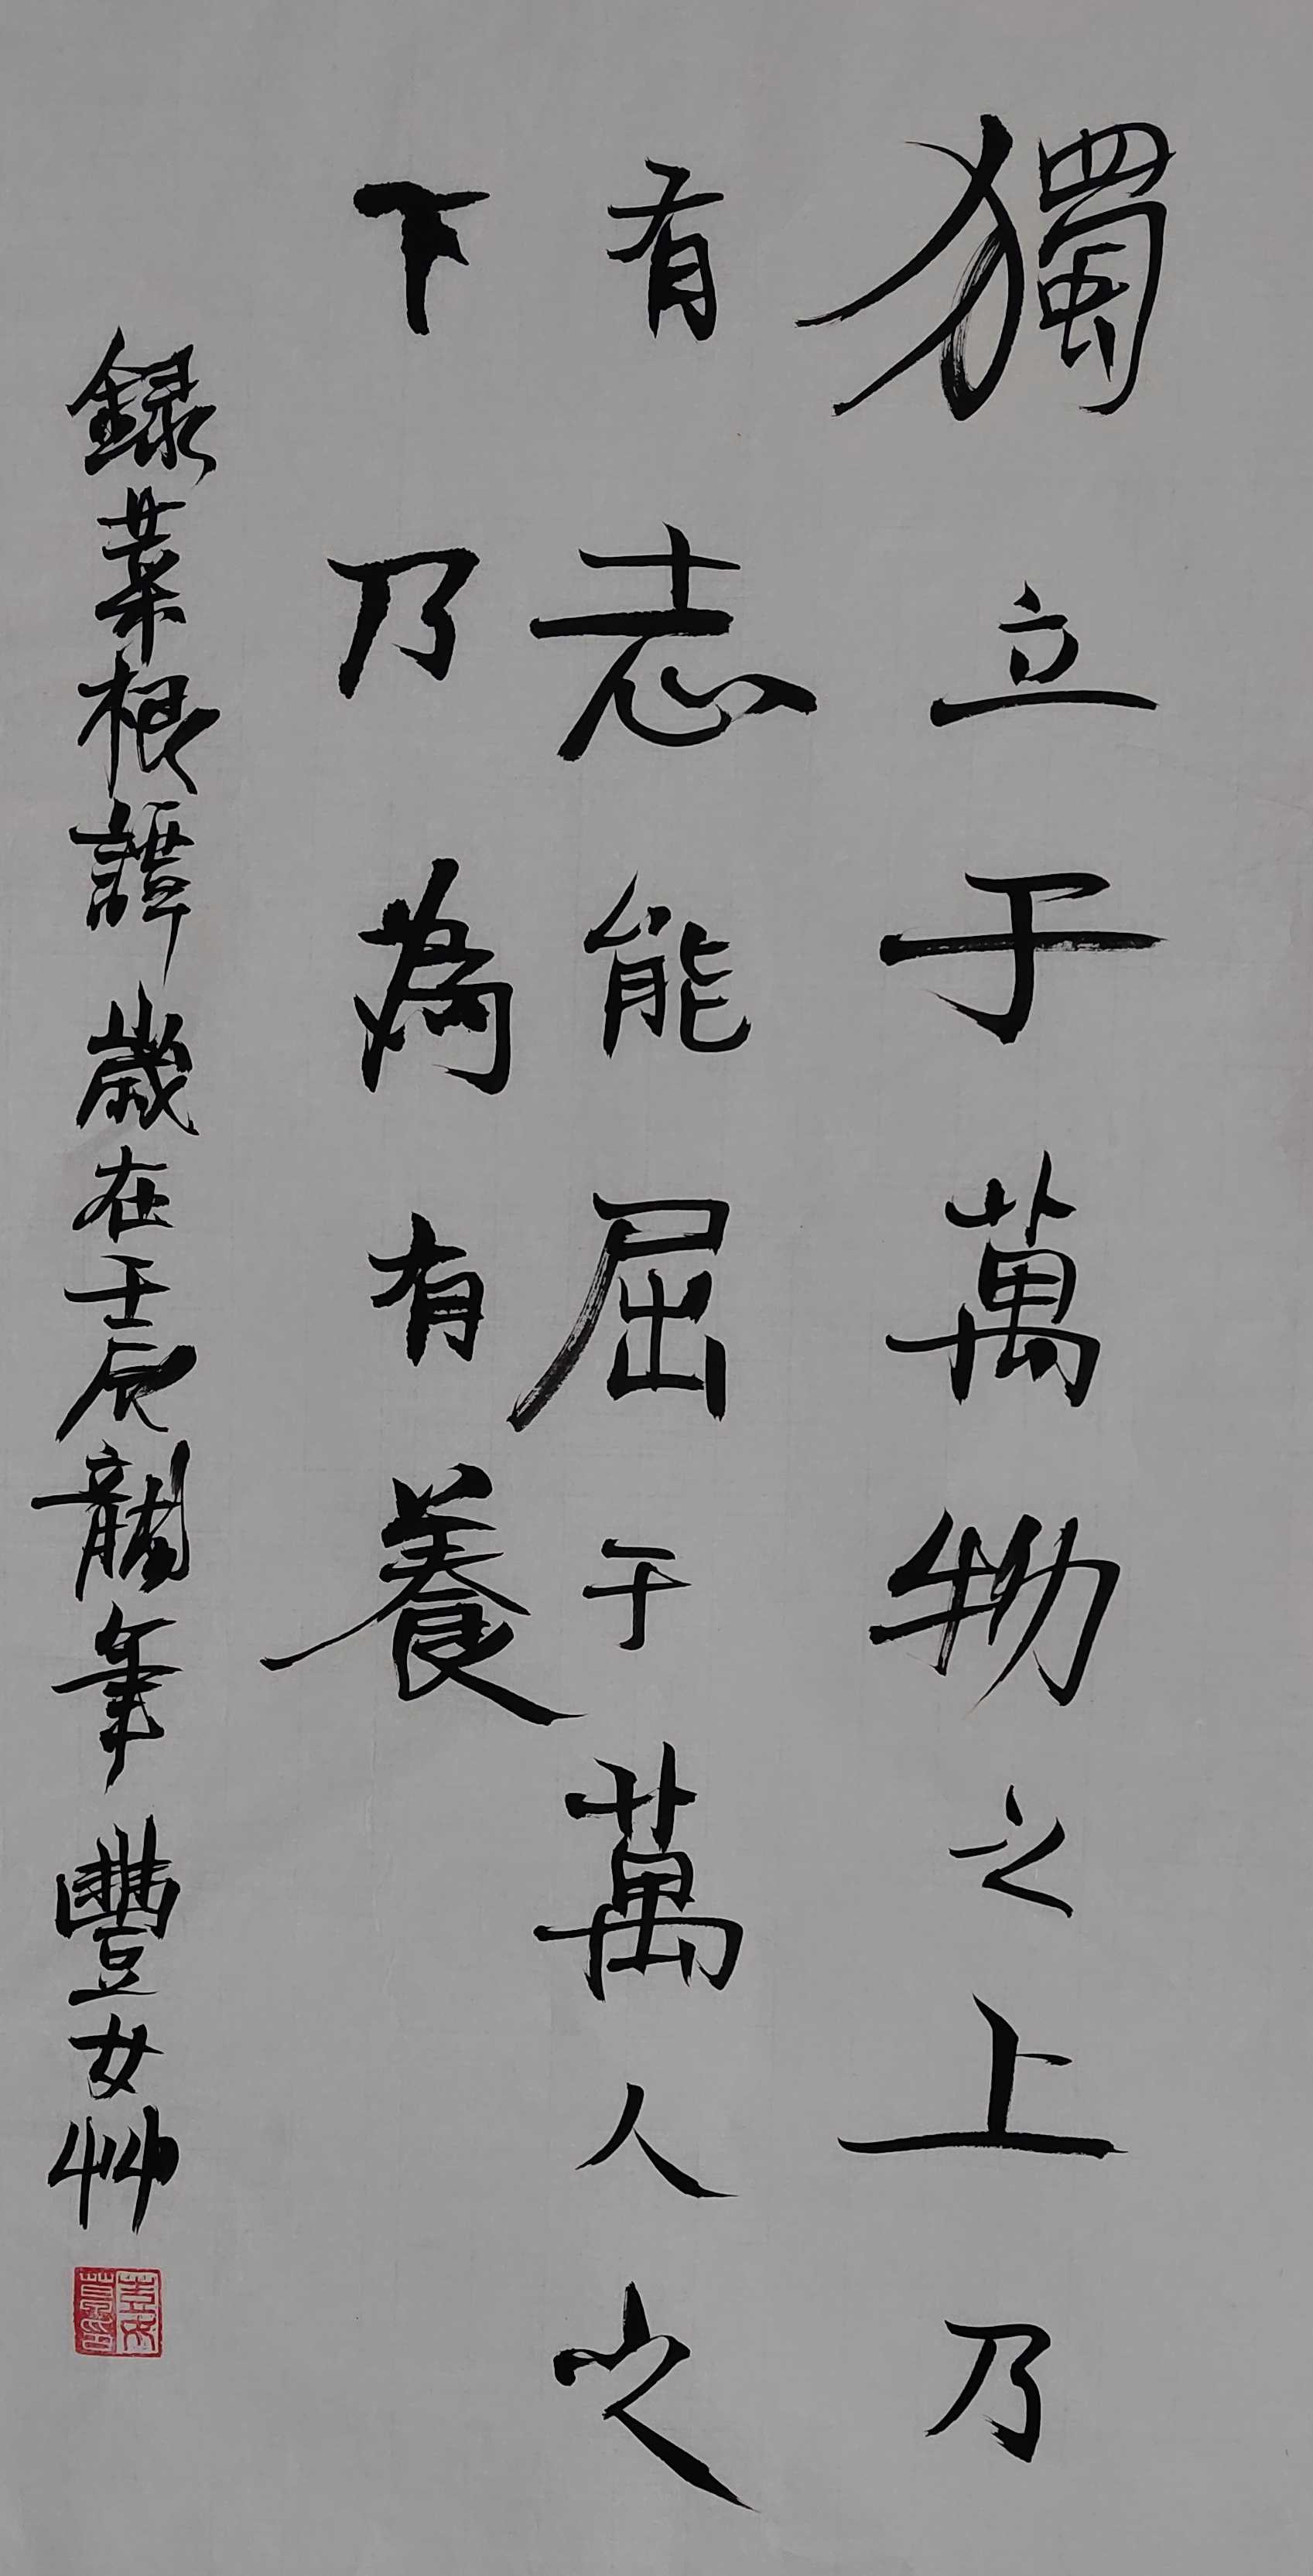 獨立于萬物之上乃
有志能屈于萬人之
下乃為有養
錄菜根譚歲在壬辰龍年豐女艸